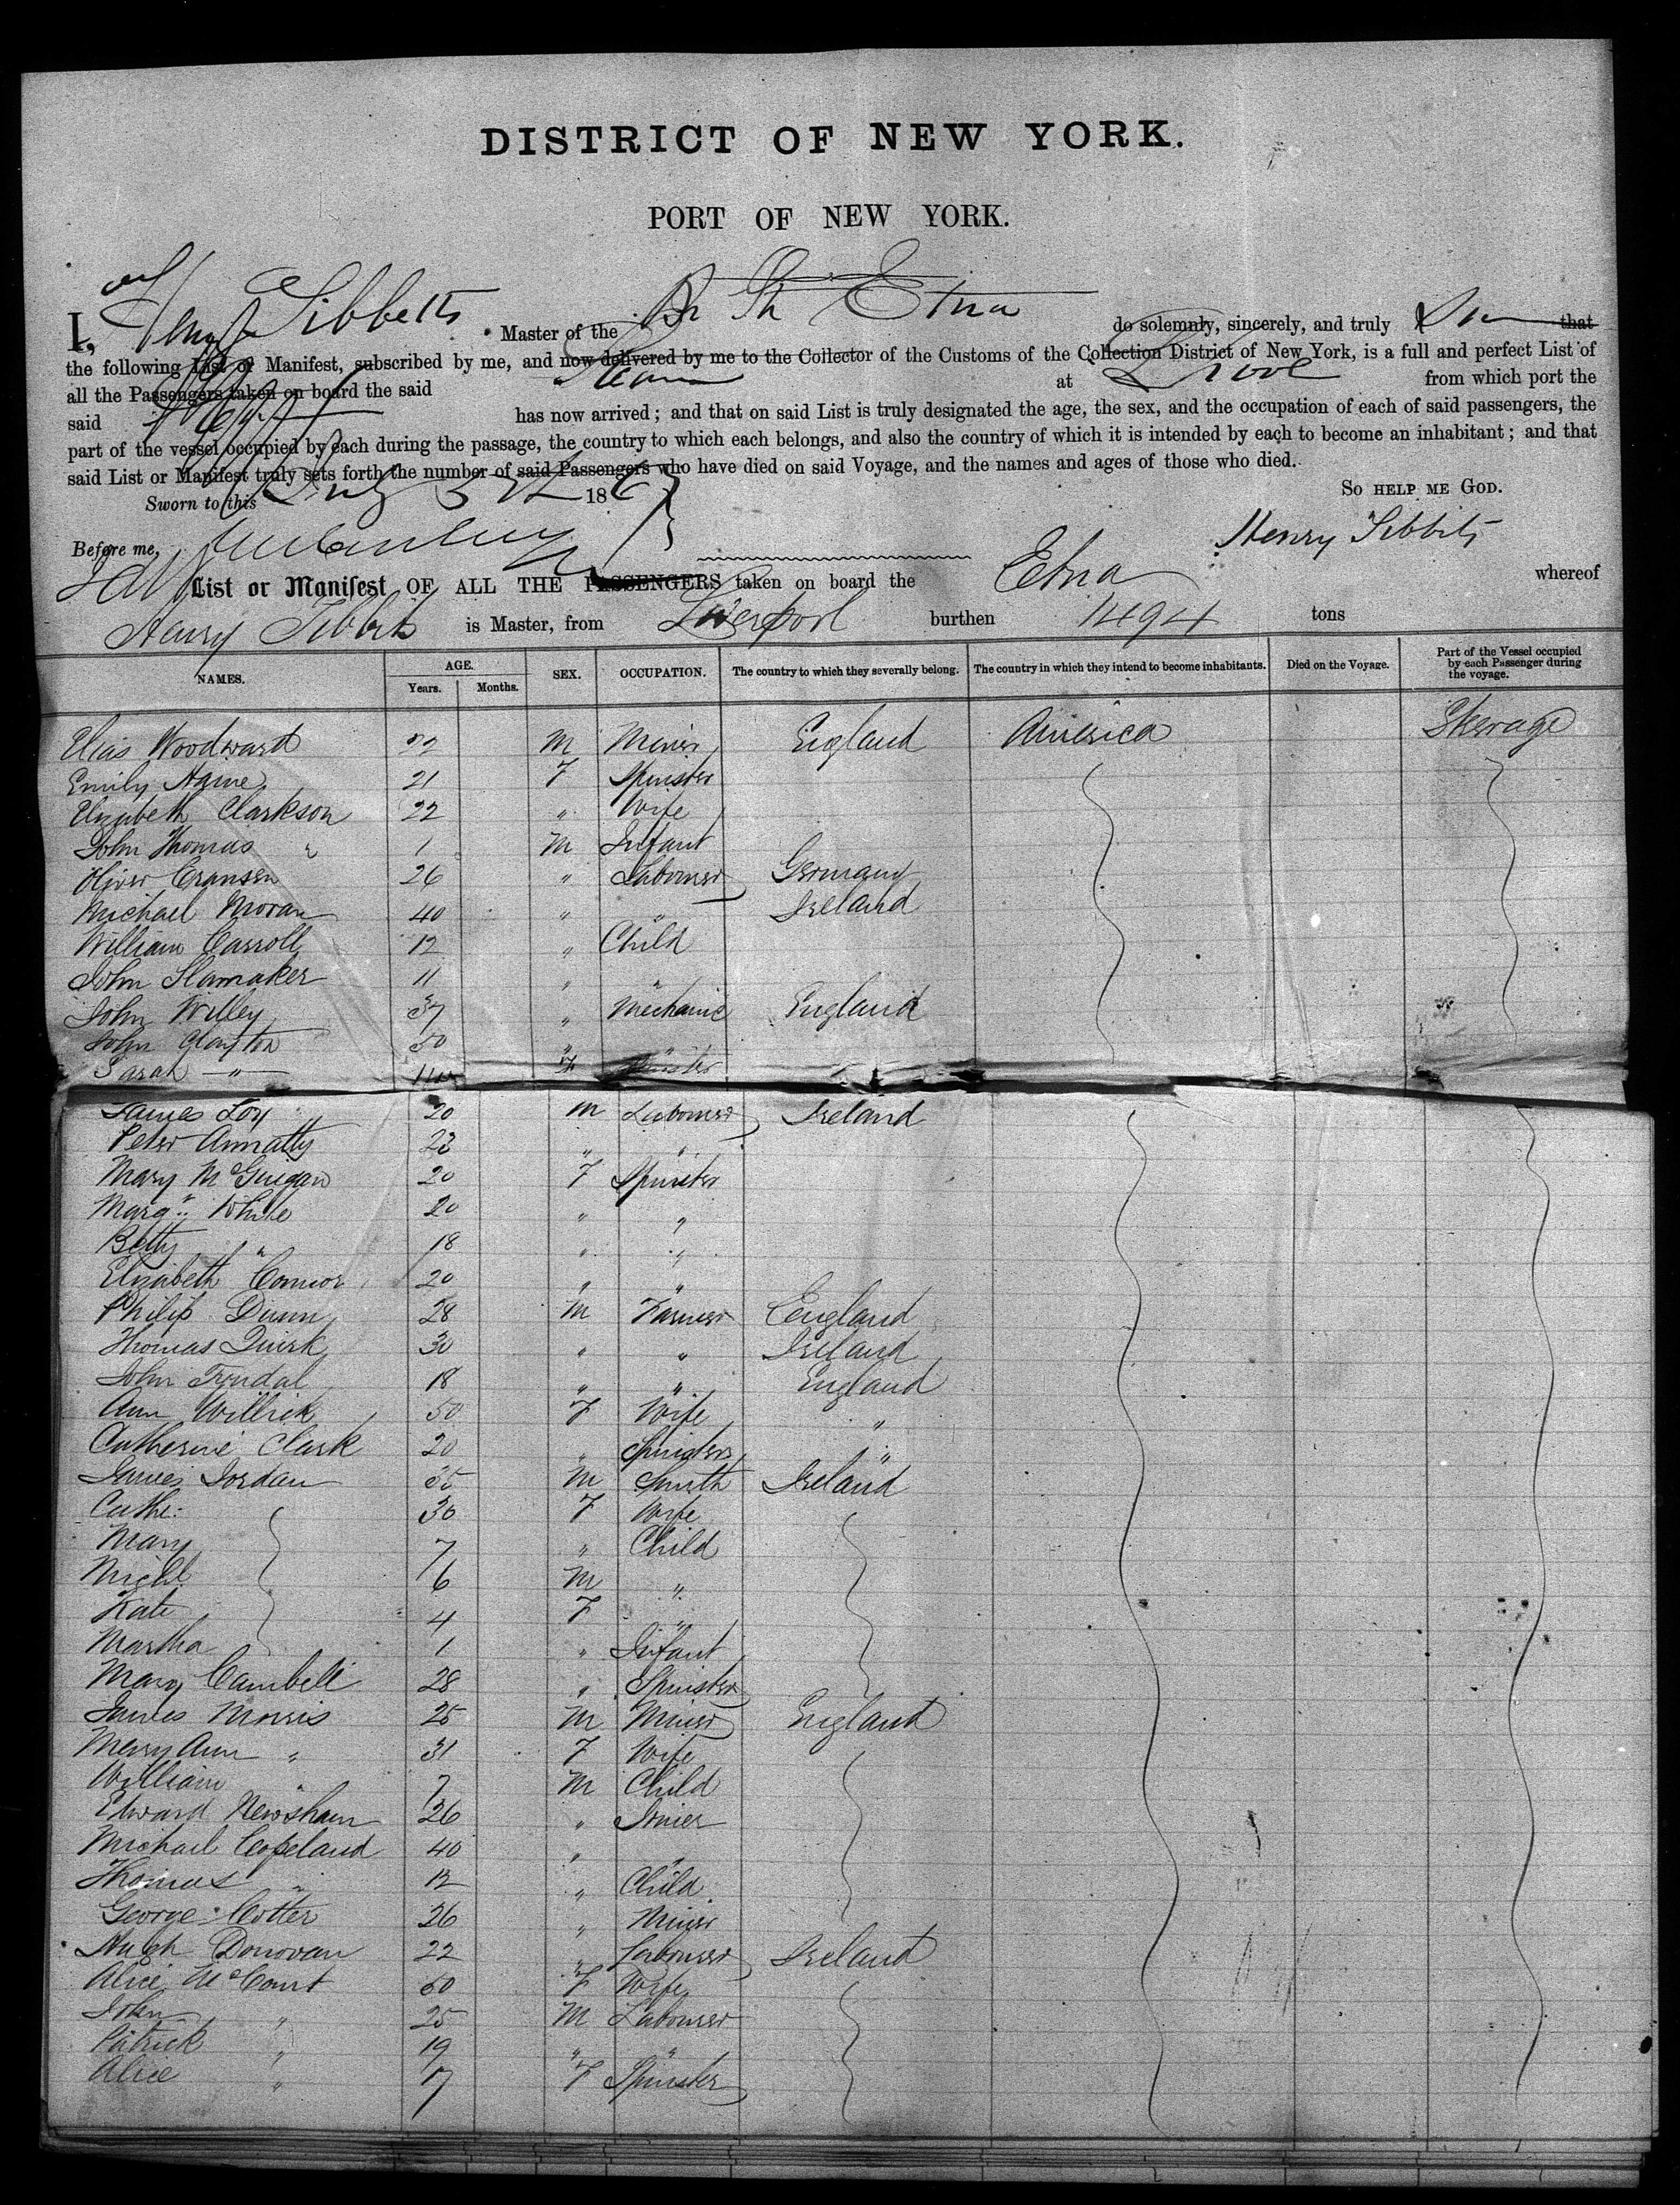 DISTRICT OF NEW YORK.
PORT OF NEW YORK.
I, Henry Tibbetts Master of the Br St Etna do solemnly, sincerely, and truly that
the following List or Manifest, subscribed by me, and now delivered by me to the Collector of the Customs of the Collection District of New York, is a full and perfect List of
all the Passengers taken on board the said Steam at L'pool from which port the
said has now arrived; and that on said List is truly designated the age, the sex, and the occupation of each of said passengers, the
part of the vessel occupied by each during the passage, the country to which each belongs, and also the country of which it is intended by each to become an inhabitant; and that
said List or Manifest truly sets forth the number of said Passengers who have died on said Voyage, and the names and ages of those who died.
So HELP ME GOD.
Sworn to this July 186
Before me, Henry Tibbits
List or Manifest OF ALL THE PASSENGERS taken on board the Etna whereof
Henry Tibbits is Master, from Liverpool burthen 1494 tons
NAMES. AGE. Years. Months. SEX. OCCUPATION. The country to which they severally belong. The country in which they intend to become inhabitants. Died on the Voyage. Part of the Vessel occupied by each Passenger during the voyage.
Elias Woodward 22 M Miner England America Steerage
Emily 21 F Spinster
Elizabeth Clarkson 22 " Wife
John Thomas " 1 M Infant
Oliver 26 " Labourer Germany
Michael Moran 40 " " Ireland
William Carroll 12 " Child
John Slamaker 11 " "
John Willey 37 " Mechanic England
John Clayton 50 " "
Sarah " F
James Foy 20 M Labourer Ireland
Peter Annatty 22 " "
Mary McGuigan 20 F Spinster
Marg't White 20 " "
Betty " 18 " "
Elizabeth Connor 20 " "
Philip Dunn 28 M Farmer England
Thomas Quirk 30 " " Ireland
John Tyndal 18 " " England
Ann Willick 50 F Wife "
Catherine Clark 20 " Spinster "
James Jordan 35 M Smith Ireland
Cathe: 30 F Wife
Mary 7 " Child
Michl 6 M "
Kate 4 F "
Martha 1 " Infant
Mary Cambell 28 " Spinster
James Morris 25 M Miner England
Mary Ann " 31 F Wife
William " 7 M Child
Edward Newsham 26 " Joiner
Michael Copeland 40 " "
Thomas " 12 " Child
George Cotter 26 " Miner
Hugh Donovan 22 " Labourer Ireland
Alice McCourt 50 F Wife
John " 25 M Labourer
Patrick " 19 " "
Alice " 17 F Spinster